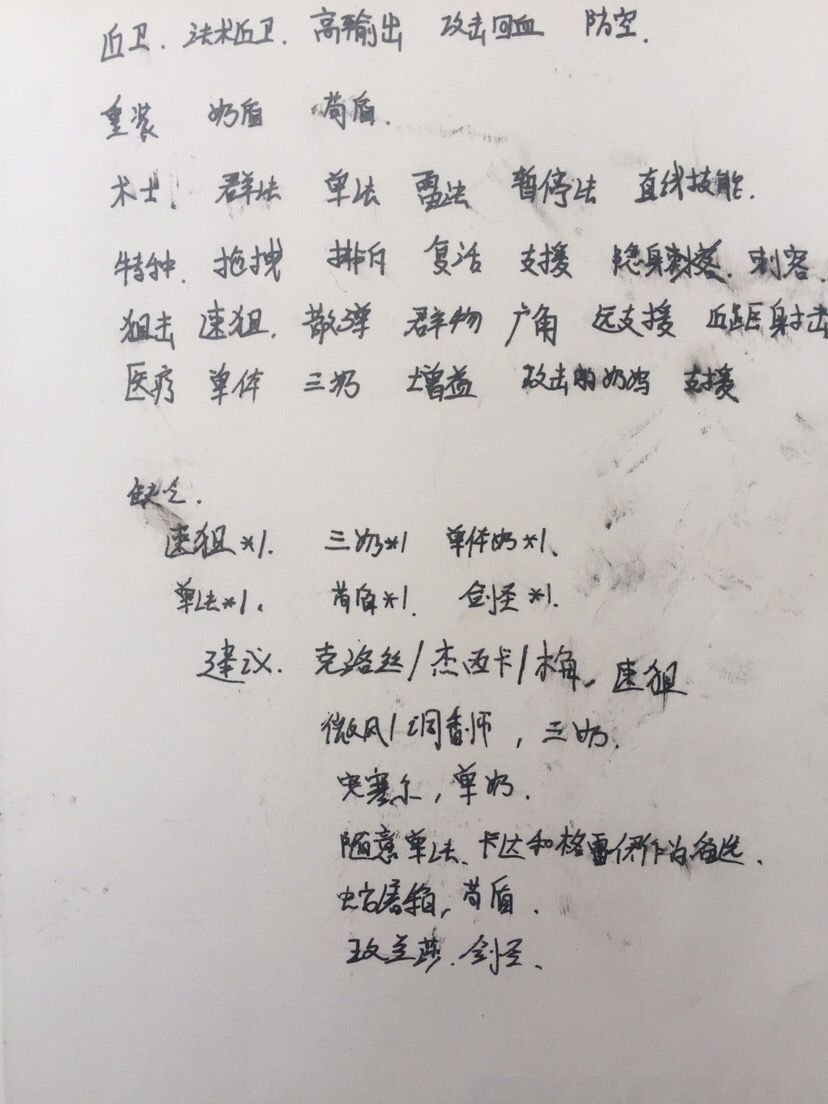 近卫. 法术近卫. 高输出 攻击回血 防空.
重装 奶盾 苟盾.
术士. 群法 单法 雷法 暂停法 直线技能.
特种. 拖拽 排斥 复活 支援 隐身刺客. 刺客.
狙击 速狙. 散弹 群物 广角 远支援 近距射击
医疗 单体 三奶 增益 攻击的奶妈 支援
缺乏.
速狙*1. 三奶*1 单体奶*1、
单法*1. 苟盾*1. 剑圣*1.
建议. 克洛丝/杰西卡/梅, 速狙
微风/调香师, 三奶.
安塞尔, 单奶.
随意单法、卡达和格雷伊作为备选.
蛇屠箱, 苟盾.
玫兰莎. 剑圣、